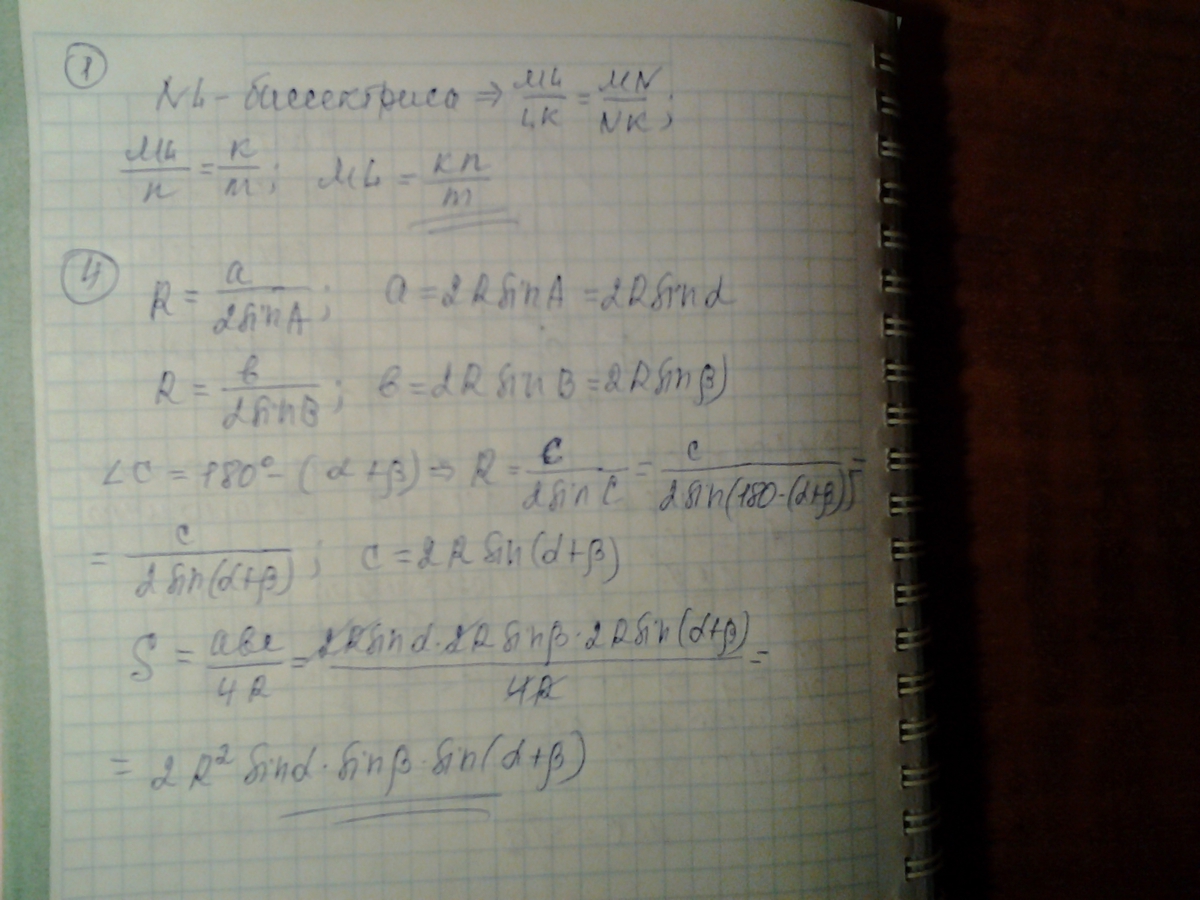 ①
NL - биссектриса ⇒ ML/LK = MN/NK;
ML/n = k/m; ML = kn/m
④
R = a/2sinA; a = 2R sinA = 2R sinα
R = b/2sinB; b = 2R sinB = 2R sinβ
∠C = 180° - (α+β) ⇒ R = c/2sinC = c/2sin(180-(α+β)) =
= c/2sin(α+β); c = 2R sin(α+β)
S = abc/4R = 2R sinα · 2R sinβ · 2R sin(α+β)/4R =
= 2R² sinα · sinβ · sin(α+β)